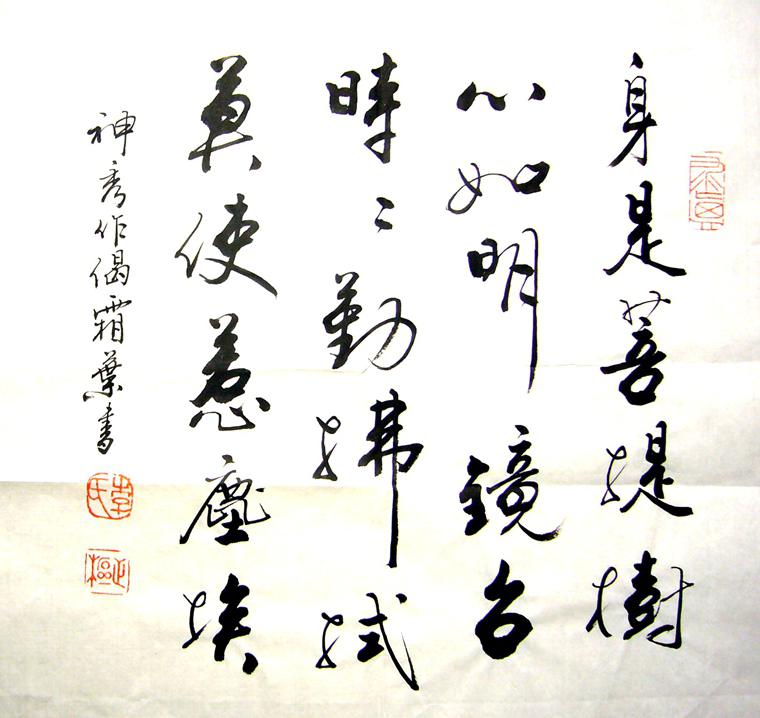 身是菩提樹
心如明鏡台
時〻勤拂拭
莫使惹塵埃
神秀作偈霜葉書
李氏